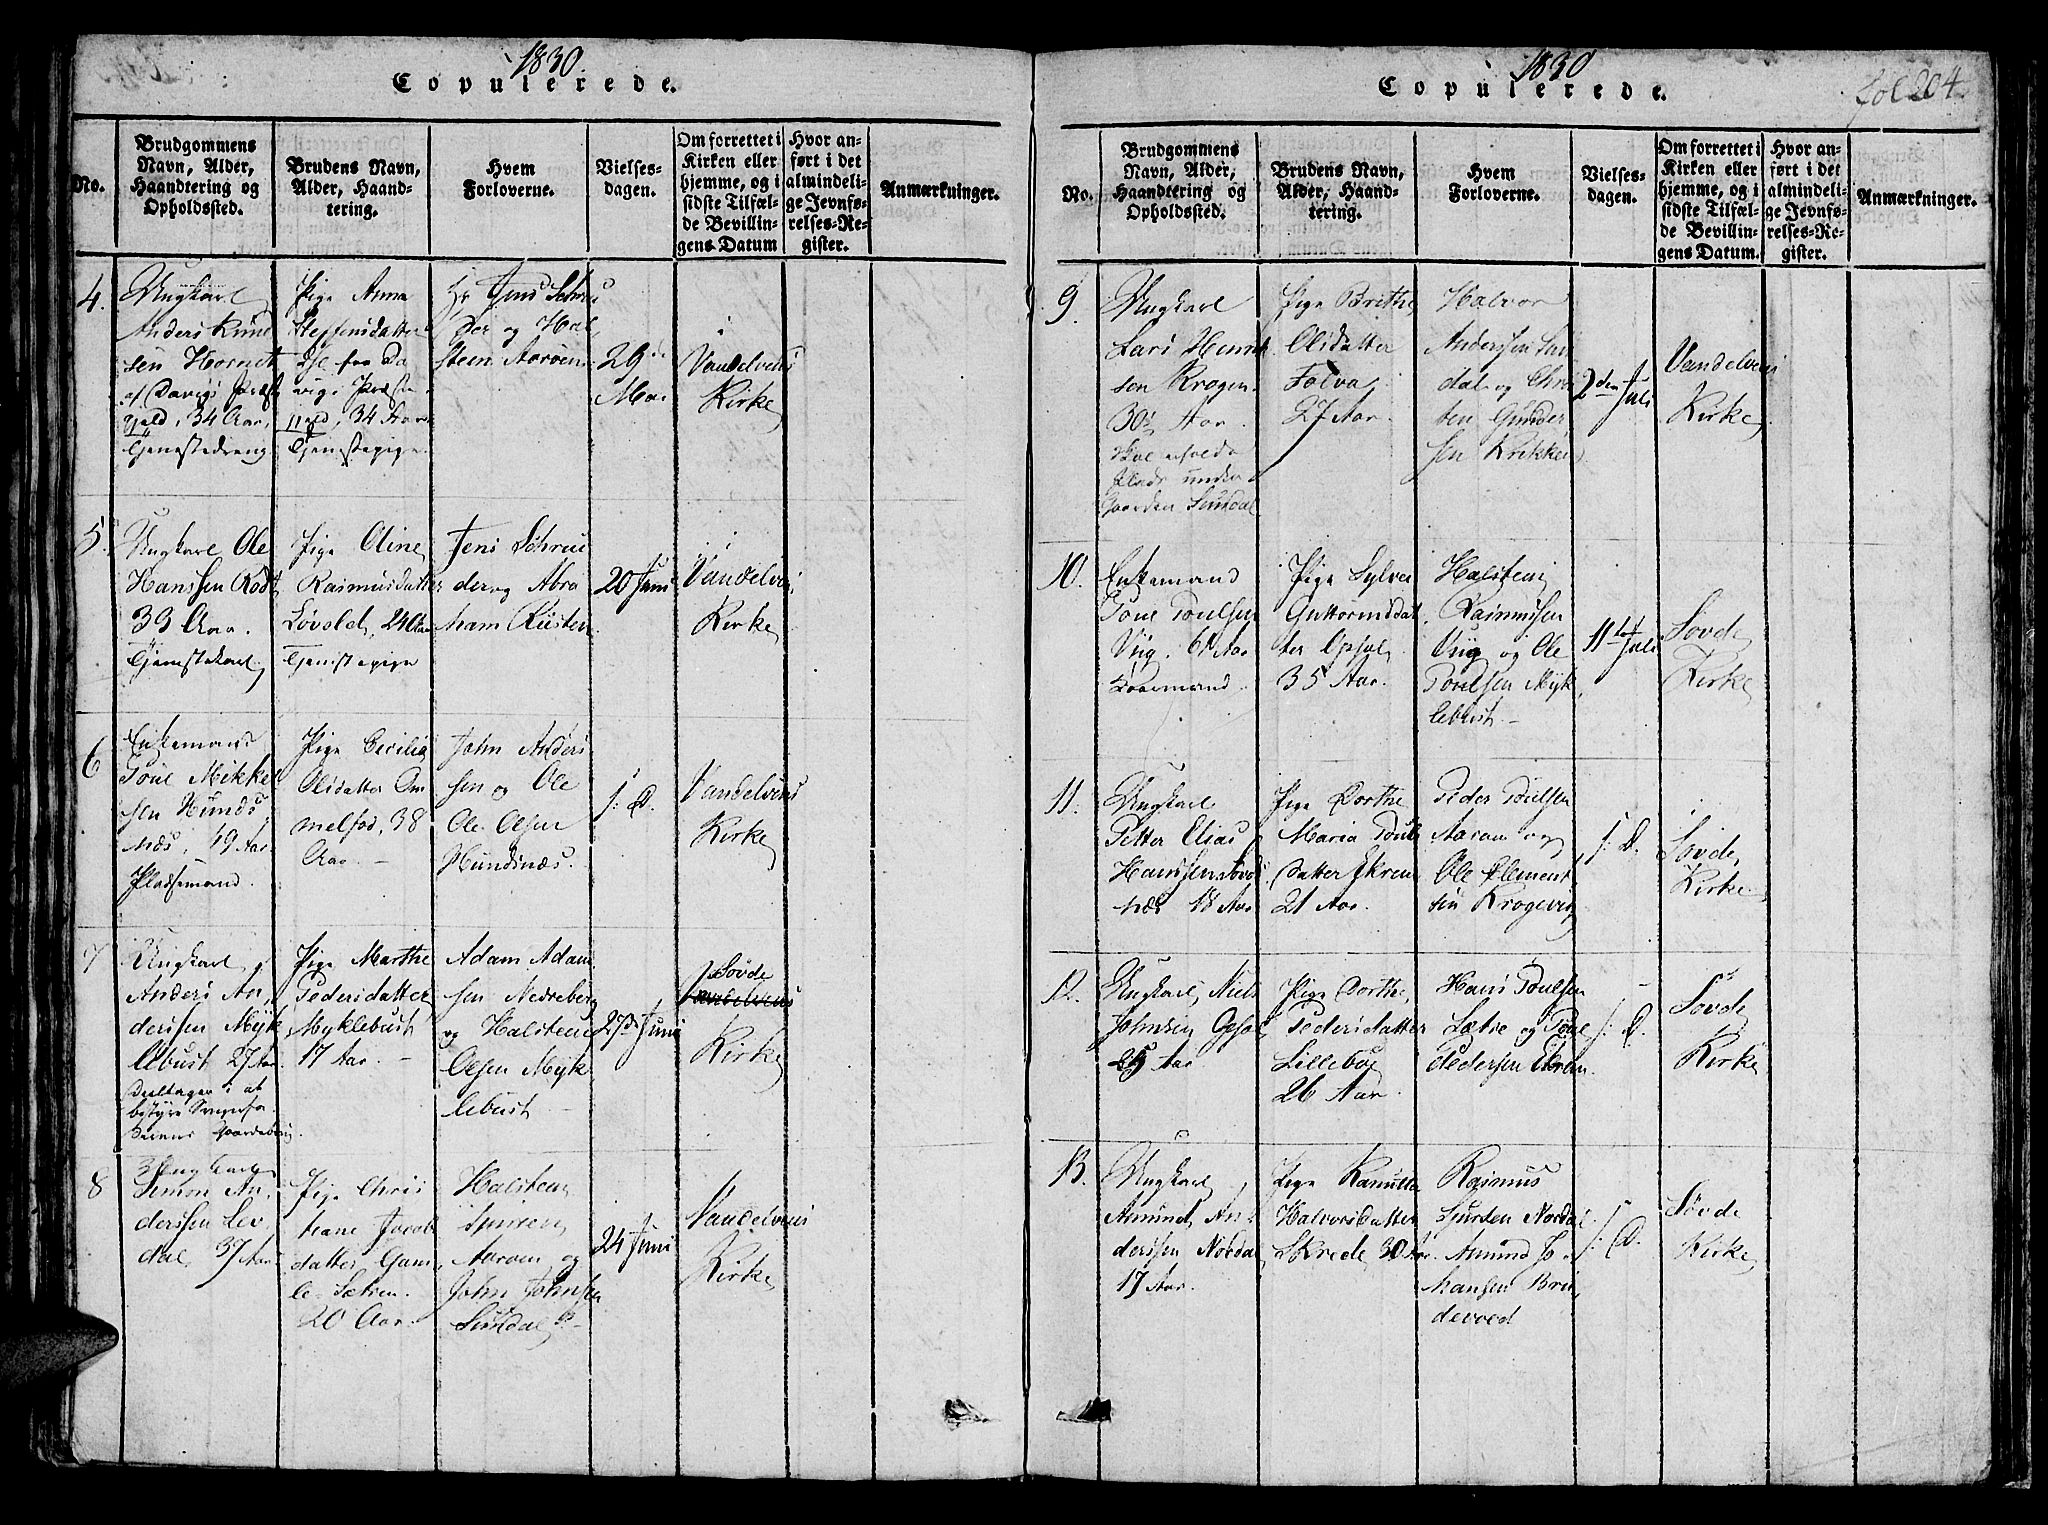 1830.
Copulerede.
No.
Brudgommens
Navn, Alder,
Haandtering og
Opholdssted.
Brudens Navn,
Alder, Haand-
tering.
Hvem
Forloverne.
Vielses-
dagen.
Om forrettet i
Kirken eller
hjemme, og i
sidste Tilfæl-
de Bevillin-
gens Datum
Hvor an-
ført i det
almindeli-
ge Jevnfø-
relses-Re-
gister.
Anmærkninger.
4.
Ungkarl
Anders
sen
34 Aar,
Tjenestedreng
Pige Anna
Steffensdatter
34 Aar
Tjenestepige
Hr Jens
der og Hal
steen Aarøen
29
Mai
Vandelvens
Kirke
5.
Ungkarl Ole
Hanssen
33 Aar.
Tjenestekarl
Pige Oline
Rasmusdatter
Løvold, 24 Aar
Tjenestepige
Jens
der og Abra
ham Rusten
20 Juni
Vandelvens
Kirke
6
Enkemand
Poul Mikkel
sen Hunds
næs, 49 Aar
Pladsemand.
Pige Cecilia
Olsdatter Om
melfod, 38
Aar. –
John Anders
sen og Ole
Ole Olsen
Hundsnæs.
s: D.
Vandelvens
Kirke
7
Ungkarl
Anders An,
derssen Myk
lebust 27 Aar
Deeltager i at
bestyre
Pige Marthe
Pedersdatter
Myklebust
17 Aar. –
Adam Adam
sen Nedreberg
og Halsteen
Olsen Myk
lebust –
27de Juni
Søvde
Vandelvens
Kirke
8
Ungkarl
Simon An,
derssen Lev
dal, 37 Aar
Pige Chris
tiane Jacobs
datter Gam,
le Sætren.
20 Aar.
Halsteen
Aarøen og
John Johnsen
Sundal
24 Juni
Vandelvens
Kirke
1830
Copulerede.
fol 204
No.
Brudgommens
Navn, Alder,
Haandtering og
Opholdssted.
Brudens Navn,
Alder, Haand-
tering.
Hvem
Forloverne.
Vielses-
dagen.
Om forrettet i
Kirken eller
hjemme, og i
sidste Tilfæl-
de Bevillin-
gens Datum.
Hvor an-
ført i det
almindeli-
ge Jevnfø-
relses-Re-
gister.
Anmærkninger.
9.
Ungkarl
Lars Henrik
sen Krogen
30½ Aar.
Plads under
Gaarden Sundal
Pige Brithe
Olsdatter
27 Aar.
Halvor
Anderssen Sun
dal og Chri
sten Gunder
sen
2den Juli
Vandelvens
Kirke
10.
Enkemand
Poul Poulsen
Viig. 61 Aar
Pige Sylvei
Guttormsdat
ter Opsal
35 Aar.
Halsteen
Rasmussen
Viig og Ole
Poulsen Myk
lebust. –
11te Juli
Søvde
Kirke
11.
Ungkarl
Petter Elias
Hanssen Søvds
næs 18 Aar
Pige Dorthe
Maria Pouls
datter Ekrem
21 Aar.
Peder Poulsen
Aaram og
Ole Clement
sen Krogevig
s: D.
Søvde
Kirke
12.
Ungkarl Niels
Johnsen Opsal
25 Aar
Pige Dorthe
Pedersdatter
Lillebøe
26 Aar
Hans Poulsen
Sætre og Poul
Pedersen Ekrem.
s: D.
Søvde
Kirke
13.
Ungkarl
Amund An
derssen Nordal
17 Aar.
Pige Ranutta
Halvorsdatter
Skrede 30 Aar.
Rasmus
Sjursen Nordal
Amund Jo
hansen Bru
devoed
s: D.
Søvde
Kirke